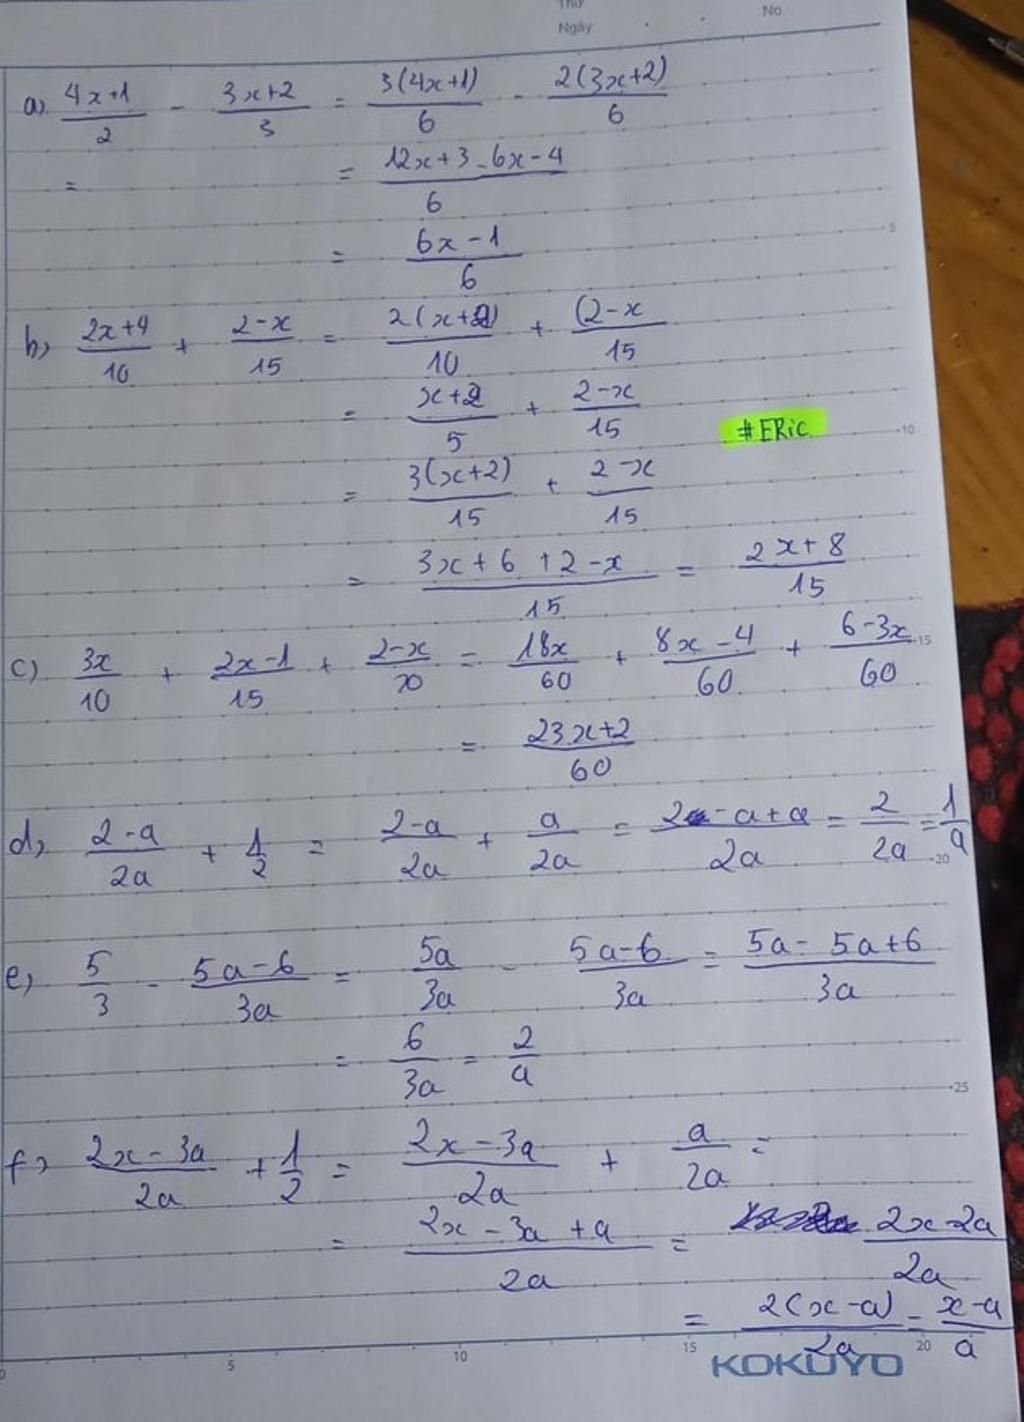 Thứ
Ngày No
a) (4x+1)/2 - (3x+2)/3 = 3(4x+1)/6 - 2(3x+2)/6
= = (12x+3-6x-4)/6
= (6x-1)/6
b) (2x+4)/10 + (2-x)/15 = 2(x+2)/10 + (2-x/15
= (x+2)/5 + (2-x)/15
#ERic
= 3(x+2)/15 + (2-x)/15
= (3x+6+2-x)/15 = (2x+8)/15
c) 3x/10 + (2x-1)/15 + (2-x)/20 = 18x/60 + (8x-4)/60 + (6-3x)/60
= (23x+2)/60
d) (2-a)/2a + 1/2 = (2-a)/2a + a/2a = (2-a+a)/2a = 2/2a = 1/a
e) 5/3 - (5a-6)/3a = 5a/3a - (5a-6)/3a = (5a-5a+6)/3a
= 6/3a = 2/a
f) (2x-3a)/2a + 1/2 = (2x-3a)/2a + a/2a =
= (2x-3a+a)/2a = (2x-2a)/2a
= 2(x-a)/2a = (x-a)/a
5
10
15
20
25
0 5 10 15 20
KOKUYO